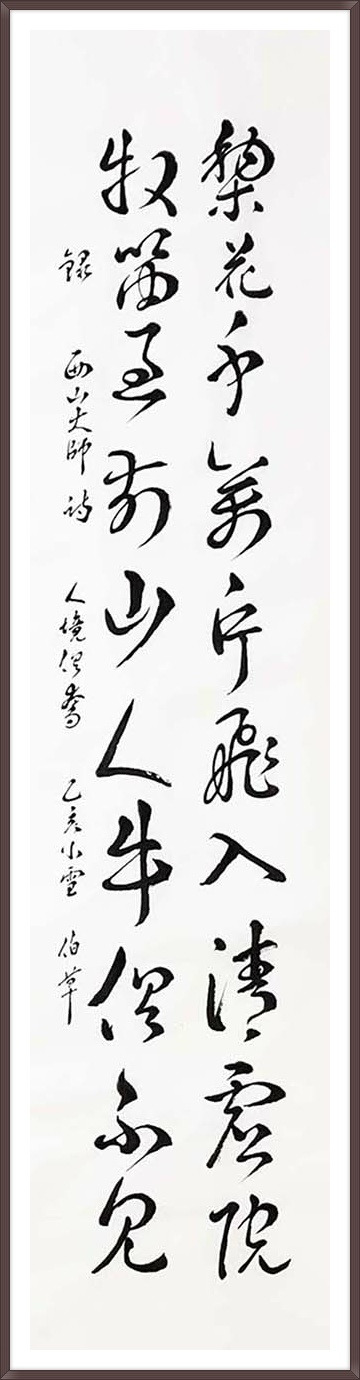 棃花千萬片飛入清虛院
牧笛過前山人牛俱不見
錄 西山大師 詩 人境俱奪 乙亥小雪 伯草